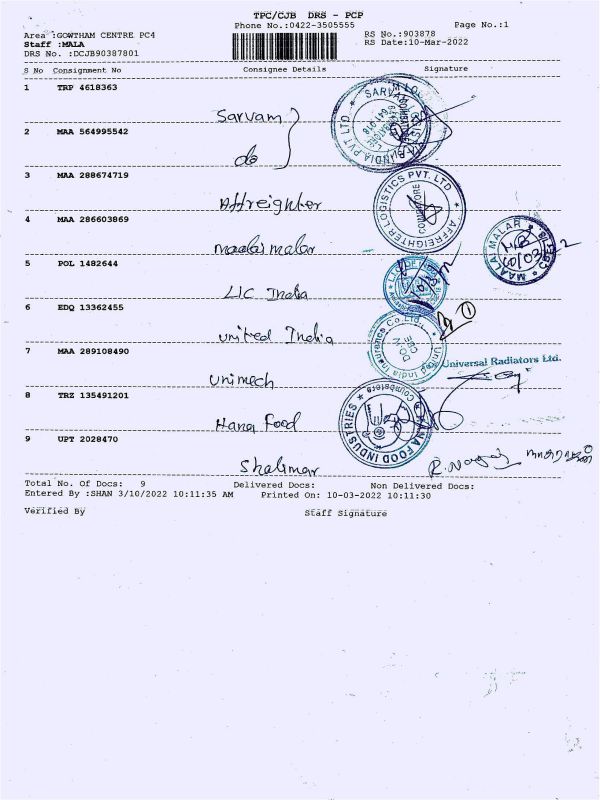 TPC/CJB DRS - PCP
Phone No.:0422-3505555 Page No.:1
Area :GOWTHAM CENTRE PC4 RS No.:903878
Staff :MALA RS Date:10-Mar-2022
DRS No. :DCJB90387801
S No Consignment No Consignee Details Signature
1 TRP 4618363
Sarvam
2 MAA 564995542
do
3 MAA 288674719
Affreighter
AFFREIGHTER LOGISTICS PVT. LTD
COIMBATORE
4 MAA 286603869
maalaimalar
MAALAI MALAR
5 POL 1482644
LIC India
6 EDQ 13362455
United India
United India Insurance Co. Ltd.
7 MAA 289108490
Universal Radiators Ltd.
Unimech
8 TRZ 135491201
Hana Food
HANA FOOD INDUSTRIES
Coimbatore
9 UPT 2028470
Shalimar
Total No. Of Docs: 9 Delivered Docs: Non Delivered Docs:
Entered By :SHAN 3/10/2022 10:11:35 AM Printed On: 10-03-2022 10:11:30
Verified By Staff Signature